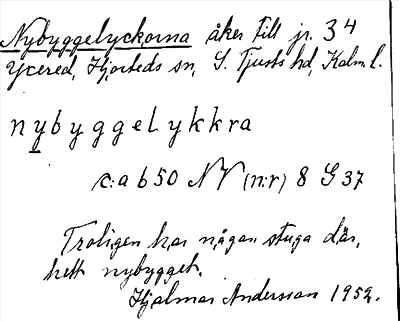 Nybyggelyckorna åker till jr. 34
Yxered, Hjorteds sn, S. Tjusts hd, Kalm l.
nybyggelykkra
c:a 650 NV (n:r) 8 G 37
Troligen har någon stuga där,
hett nybygget.
Hjalmar Andersson 1952.